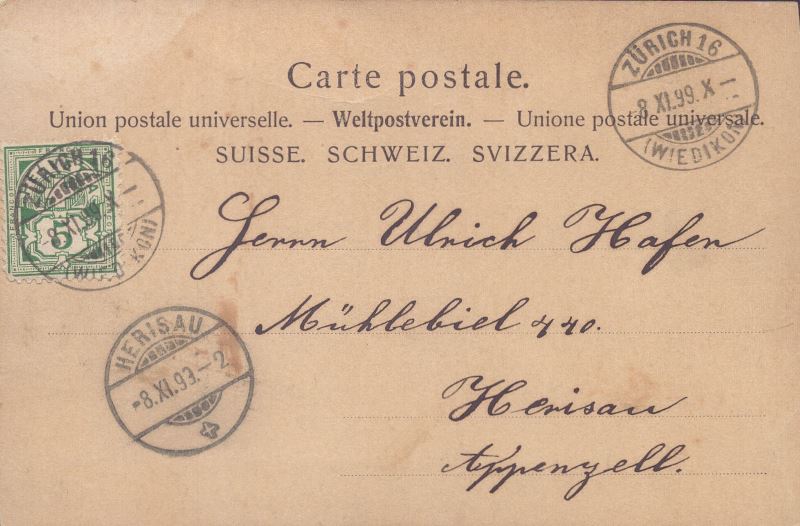 Carte postale.
Union postale universelle. — Weltpostverein. — Unione postale universale.
SUISSE. SCHWEIZ. SVIZZERA.
ZÜRICH 16
-8 XI.99.X-
(WIEDIKON)
ZÜRICH 16
8 XI.99.X
(WIEDIKON)
5
Herrn Ulrich Hafen
Mühlebiel 440.
Herisau
Appenzell.
HERISAU
-8.XI.99.-2